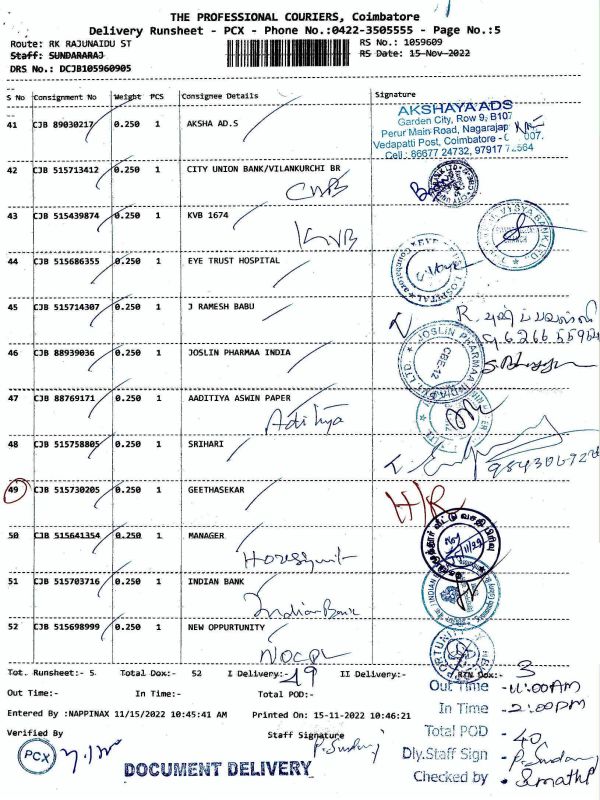 THE PROFESSIONAL COURIERS, Coimbatore
Delivery Runsheet - PCX - Phone No.:0422-3505555 - Page No.:5
Route: RK RAJUNAIDU ST RS No.: 1059609
Staff: SUNDARARAJ RS Date: 15-Nov-2022
DRS No.: DCJB105960905
S No Consignment No Weight PCS Consignee Details Signature
41 CJB 89030217 0.250 1 AKSHA AD.S
AKSHAYA ADS
Garden City, Row 9, B107
Perur Main Road, Nagarajap
Vedapatti Post, Coimbatore - 007.
Cell : 86677 24732, 97917 72564
42 CJB 515713412 0.250 1 CITY UNION BANK/VILANKURCHI BR
CUB
43 CJB 515439874 0.250 1 KVB 1674
KVB
44 CJB 515686355 0.250 1 EYE TRUST HOSPITAL
45 CJB 515714307 0.250 1 J RAMESH BABU
46 CJB 88939036 0.250 1 JOSLIN PHARMAA INDIA
JOSLIN PHARMAA INDIA PVT. LTD.
CBE-12
47 CJB 88769171 0.250 1 AADITIYA ASWIN PAPER
Adithya
48 CJB 515758805 0.250 1 SRIHARI
49 CJB 515730205 0.250 1 GEETHASEKAR
H/R
50 CJB 515641354 0.250 1 MANAGER
51 CJB 515703716 0.250 1 INDIAN BANK
Indian Bank
52 CJB 515698999 0.250 1 NEW OPPURTUNITY
NOCPL
Tot. Runsheet:- 5 Total Dox:- 52 I Delivery:- 49 II Delivery:- RTN Dox:- 3
Out Time:- In Time:- Total POD:-
Out Time - 11:00AM
In Time - 2:00PM
Entered By :NAPPINAX 11/15/2022 10:45:41 AM Printed On: 15-11-2022 10:46:21
Verified By Staff Signature
Total POD - 40
PCX
Dly.Staff Sign -
DOCUMENT DELIVERY
Checked by -